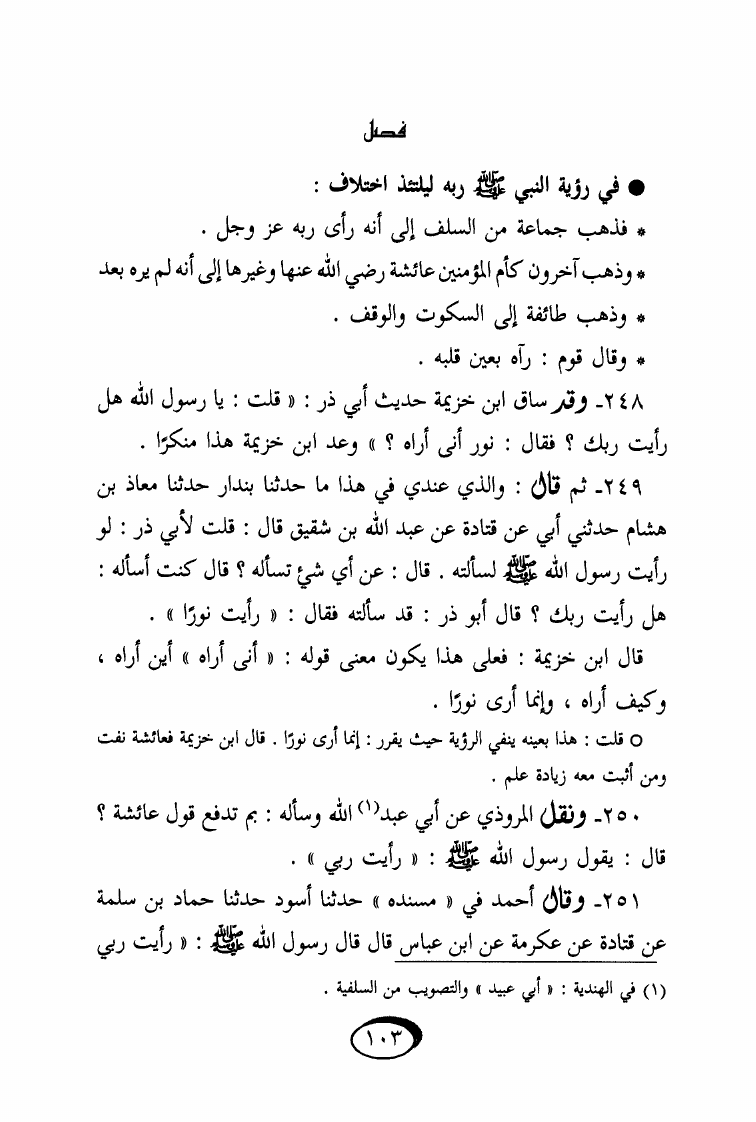 فصل
● في رؤية النبي ﷺ ربه ليلتئذ اختلاف :
* فذهب جماعة من السلف إلى أنه رأى ربه عز وجل .
* وذهب آخرون كأم المؤمنين عائشة رضي الله عنها وغيرها إلى أنه لم يره بعد
* وذهب طائفة إلى السكوت والوقف .
* وقال قوم : رآه بعين قلبه .
٢٤٨- وقد ساق ابن خزيمة حديث أبي ذر : « قلت : يا رسول الله هل
رأيت ربك ؟ فقال : نور أنى أراه ؟ » وعد ابن خزيمة هذا منكرًا .
٢٤٩- ثم قال : والذي عندي في هذا ما حدثنا بندار حدثنا معاذ بن
هشام حدثني أبي عن قتادة عن عبد الله بن شقيق قال : قلت لأبي ذر : لو
رأيت رسول الله ﷺ لسألته . قال : عن أي شئ تسأله ؟ قال كنت أسأله :
هل رأيت ربك ؟ قال أبو ذر : قد سألته فقال : « رأيت نورًا » .
قال ابن خزيمة : فعلى هذا يكون معنى قوله : « أنى أراه » أين أراه ،
وكيف أراه ، وإنما أرى نورًا .
○ قلت : هذا بعينه ينفي الرؤية حيث يقرر : إنما أرى نورًا . قال ابن خزيمة فعائشة نفت
ومن أثبت معه زيادة علم .
٢٥٠- ونقل المروذي عن أبي عبد(١) الله وسأله : بم تدفع قول عائشة ؟
قال : يقول رسول الله ﷺ : « رأيت ربي » .
٢٥١- وقال أحمد في « مسنده » حدثنا أسود حدثنا حماد بن سلمة
عن قتادة عن عكرمة عن ابن عباس قال قال رسول الله ﷺ : « رأيت ربي
(١) في الهندية : « أبي عبيد » والتصويب من السلفية .
١٠٣